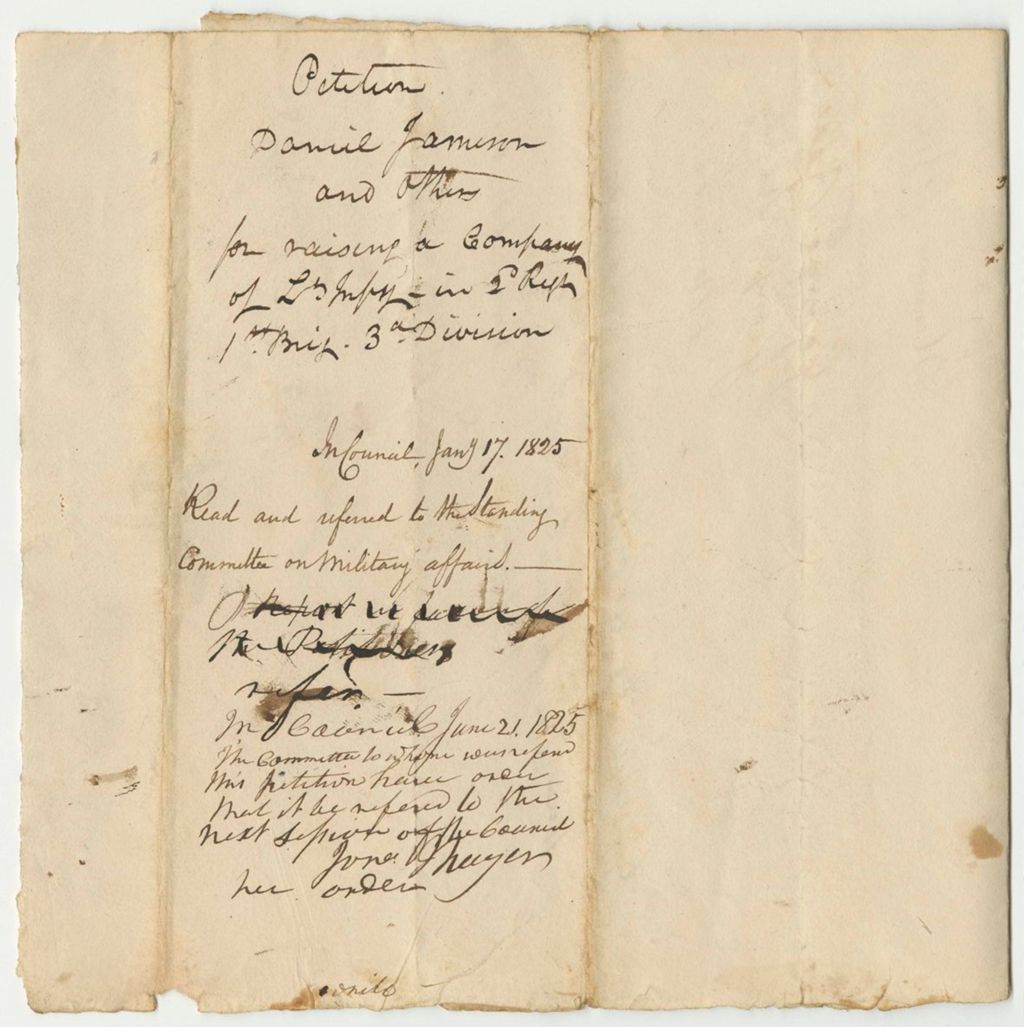 Petition
Daniel Jameson
and Others
for raising a Company
of Lt Infy - in 2d Regt
1st Brig. 3d Division
In Council, Jany 17. 1825
Read and referred to the Standing
Committee on Military affairs. —
Report in favor of
the Petitioners
refer. —
In Council June 21. 1825
The Committee to whome was referd
this petition have order
that it be refered to the
next Session of the Council
Jona Thayer
per order